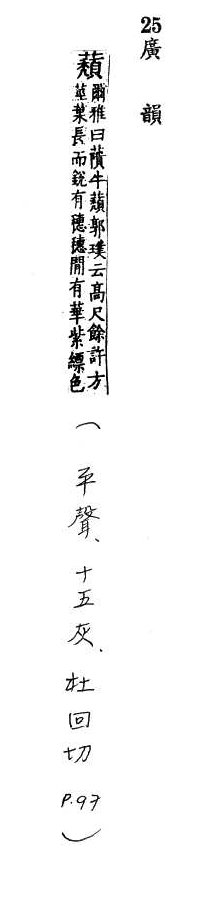 25 廣韻
蘈
爾雅曰藬牛蘈郭璞云高尺餘許方
莖葉長而銳有穗穗閒有華紫縹色
(平聲、十五灰、杜回切 P.97)